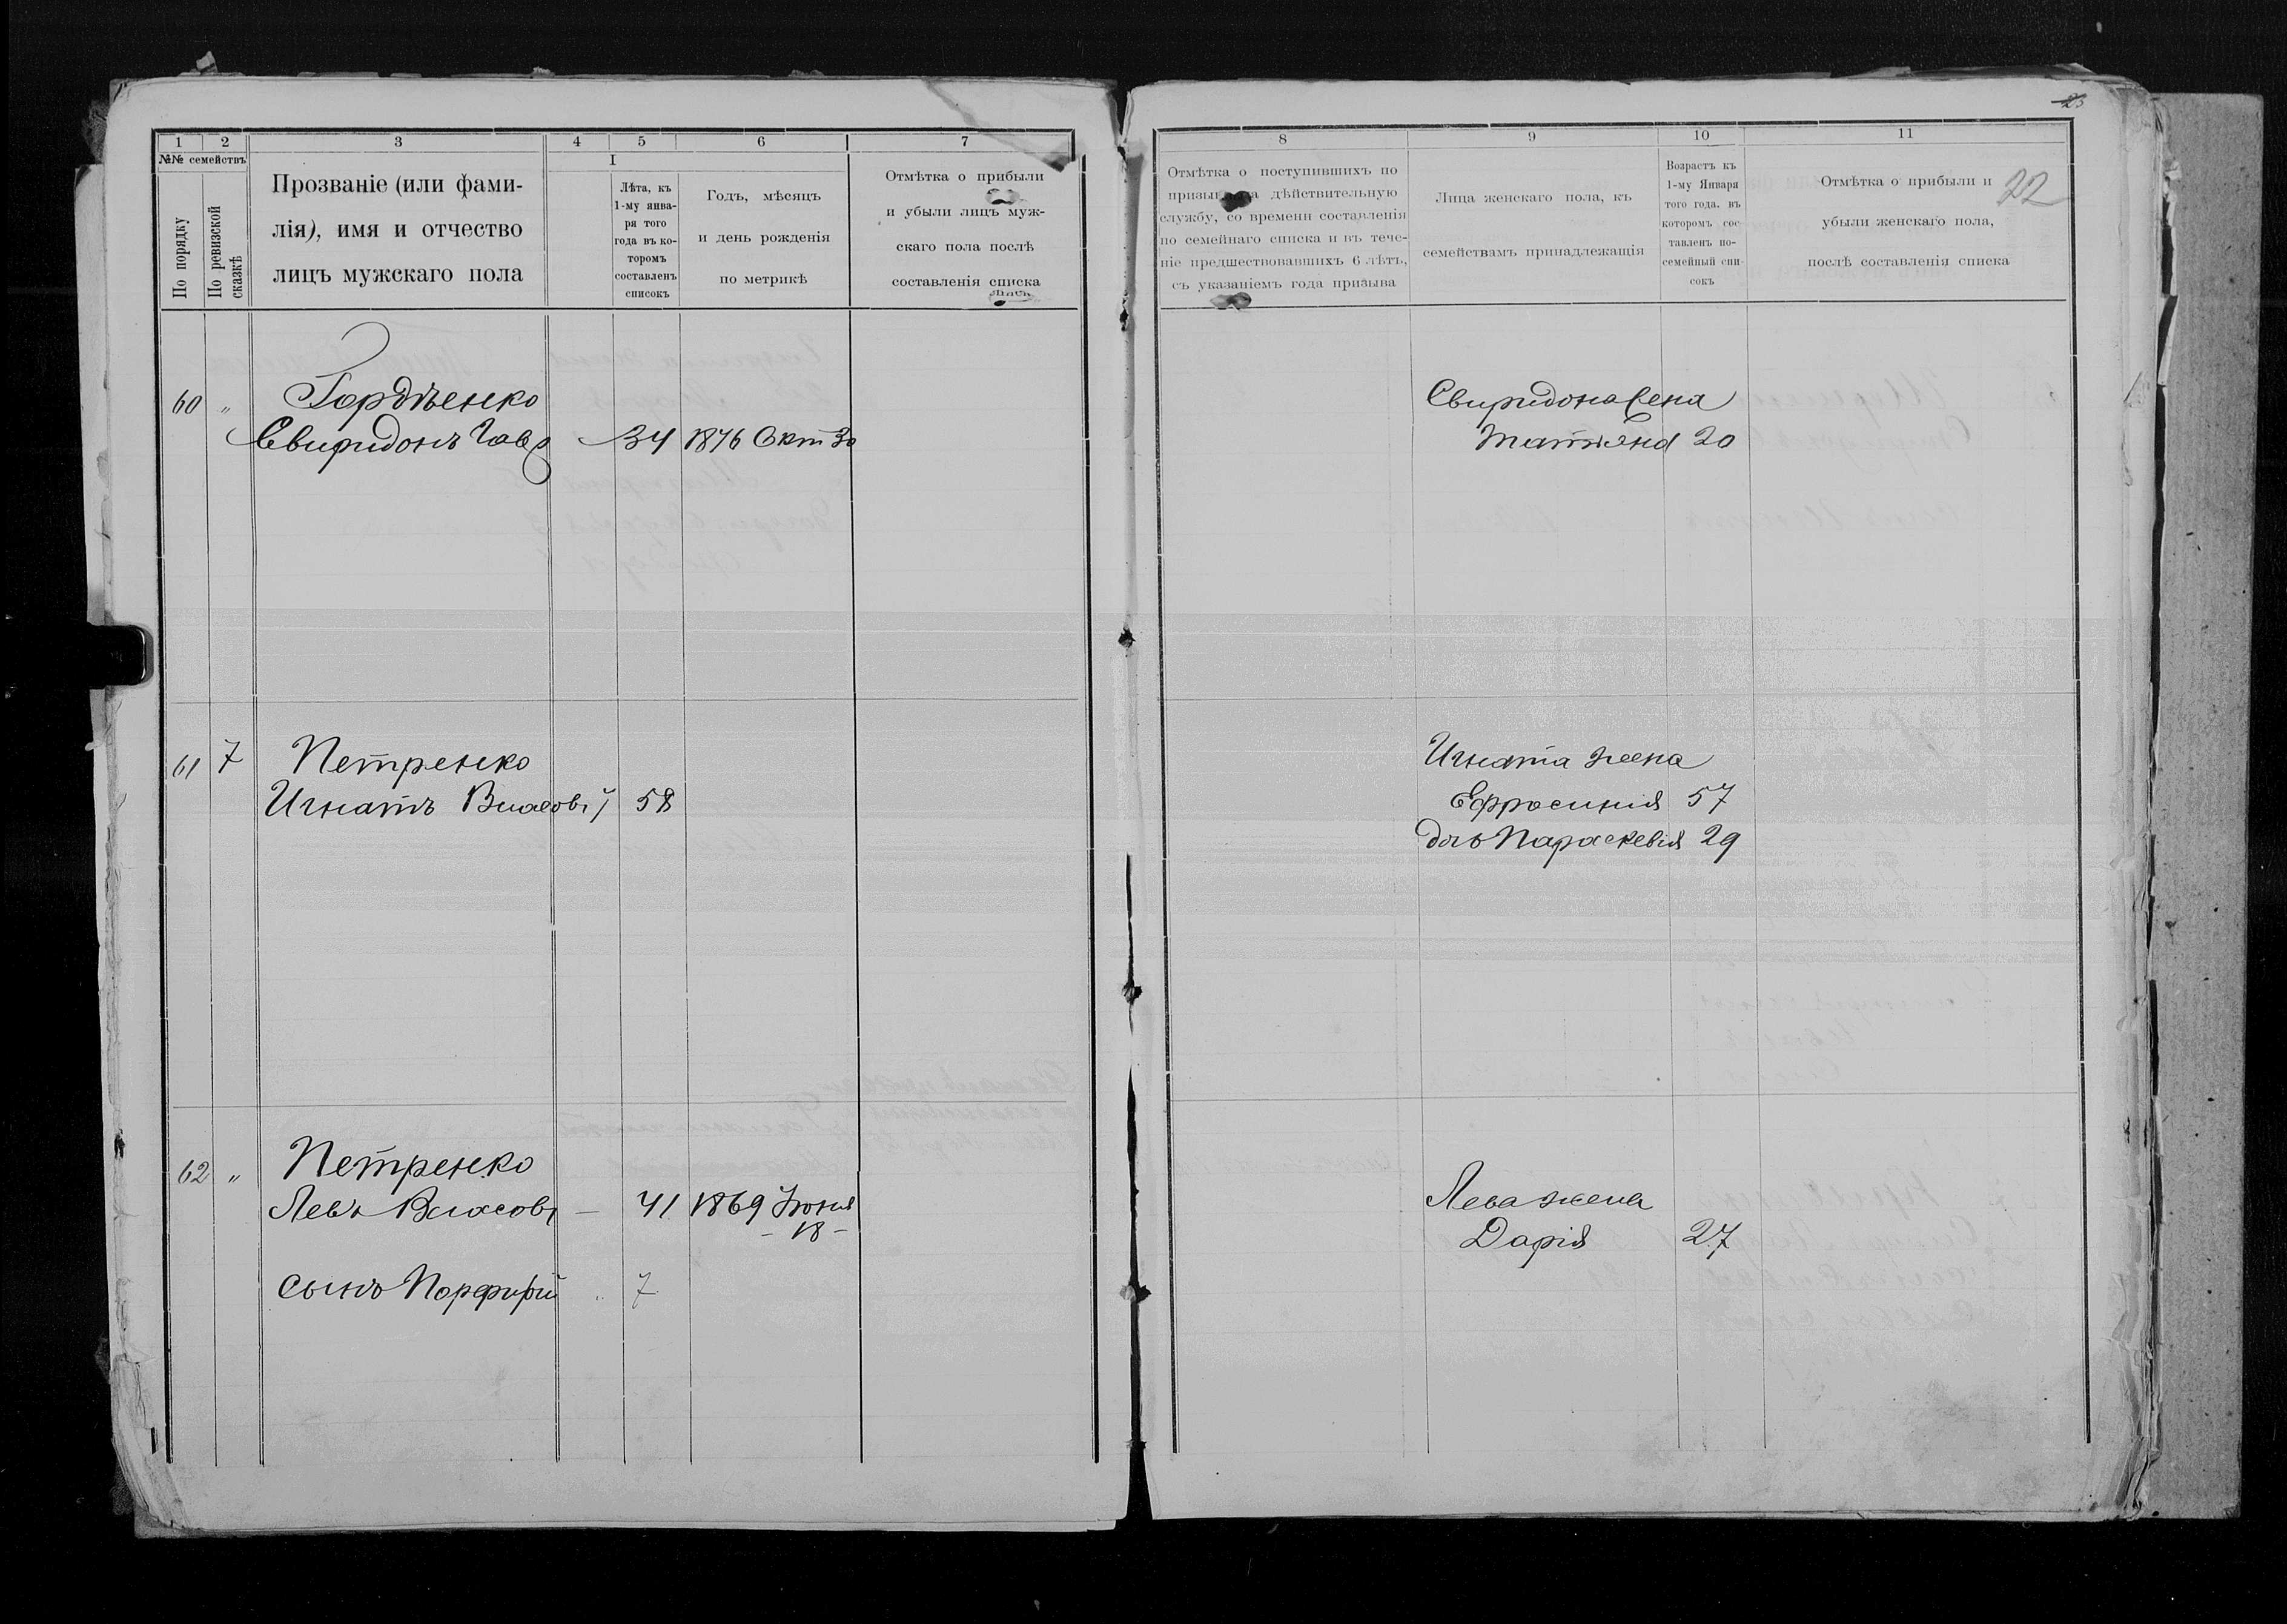 1 2 3 4 5 6 7
№№ семействъ
По порядку
По ревизской сказкѣ
Прозваніе (или фами-
лія), имя и отчество
лицъ мужскаго пола
I
Лѣта, къ
1-му янва-
ря того
года въ ко-
торомъ
составленъ
списокъ
Годъ, мѣсяцъ
и день рожденія
по метрикѣ
Отмѣтка о прибыли
и убыли лицъ муж-
скаго пола послѣ
составленія списка
60 " Гордѣенко
Свиридонъ Гавр 34 1876 Окт 30
61 7 Петренко
Игнатъ Власовъ 58
62 " Петренко
Левъ Власовъ — 41 1869 Іюня
- 18 -
сынъ Порфирій " 7
8 9 10 11
Отмѣтка о поступившихъ по
призыву на дѣйствительную
службу, со времени составленія
по семейнаго списка и въ тече-
ніе предшествовавшихъ 6 лѣтъ,
съ указаніемъ года призыва
Лица женскаго пола, къ
семействамъ принадлежащія
Возрастъ къ
1-му Января
того года, въ
которомъ сос-
тавленъ по-
семейный спи-
сокъ
Отмѣтка о прибыли и
убыли женскаго пола,
послѣ составленія списка
22
Свиридона жена
Татьяна 20
Игната жена
Ефросинія 57
дочь Параскевія 29
Лева жена
Дарія 27